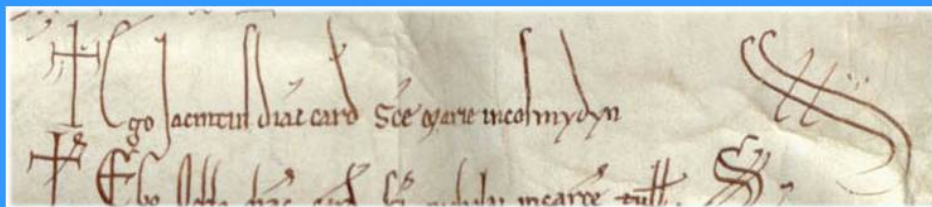 † Ego Jacintus diac card Sce Marie in cosmydyn
† Ego diac card Sci in carce tull